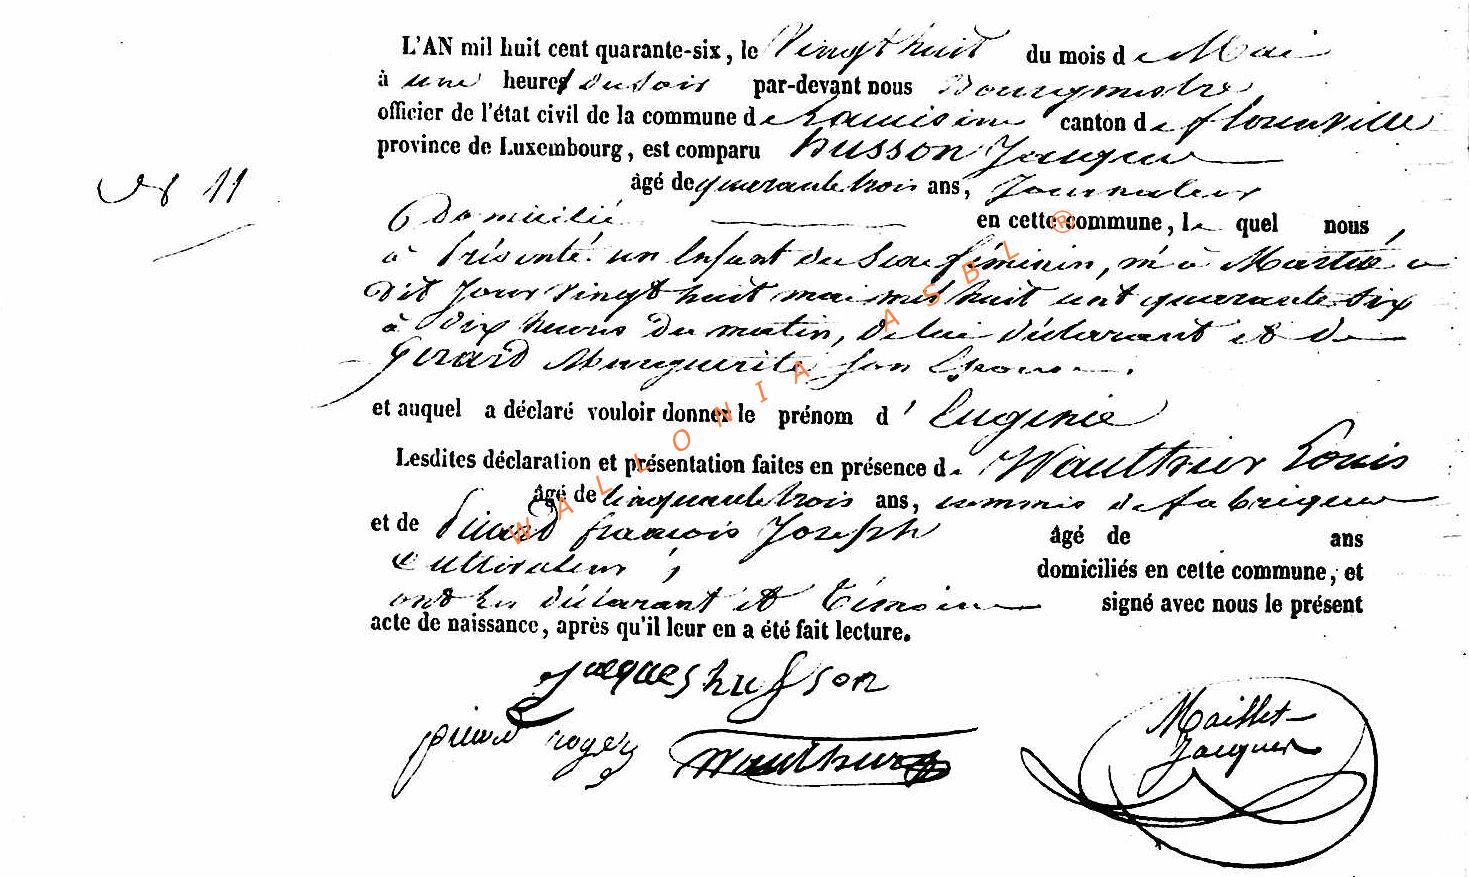 L'AN mil huit cent quarante-six, le Vingt huit du mois de Mai
à une heure du soir par-devant nous Bourgmestre
officier de l'état civil de la commune de canton de florenville
province de Luxembourg, est comparu husson Jacques
No 11
âgé de quarante trois ans, Journalier
Domicilié en cette commune, le quel nous
à présenté un Enfant du Sexe féminin, né à
dit Jour vingt huit mai mil huit cent quarante six
à Dix heures du matin, de lui déclarant et de
Gerard Marguerite son Epouse.
et auquel a déclaré vouloir donner le prénom d' Eugenie
Lesdites déclaration et présentation faites en présence de Wauthier Louis
âgé de Cinquante trois ans, commis de fabrique
et de François Joseph âgé de ans
Cultivateur, domiciliés en cette commune, et
ont les déclarant et témoins signé avec nous le présent
acte de naissance, après qu'il leur en a été fait lecture.
jacques husson
Maillet
Jacques
Wauthier
WALLONIA ASBL ®